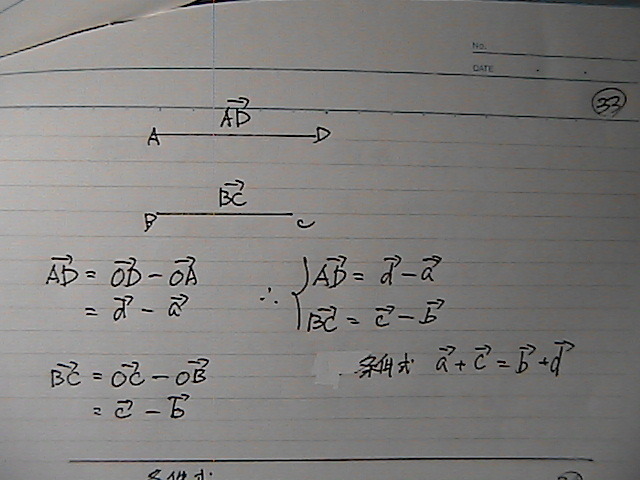 No.
DATE
33
AD→
A D
BC→
B C
AD→ = OD→ - OA→
= d→ - a→
∴ { AD→ = d→ - a→
BC→ = c→ - b→
BC→ = OC→ - OB→
= c→ - b→
条件式 a→ + c→ = b→ + d→
条件式